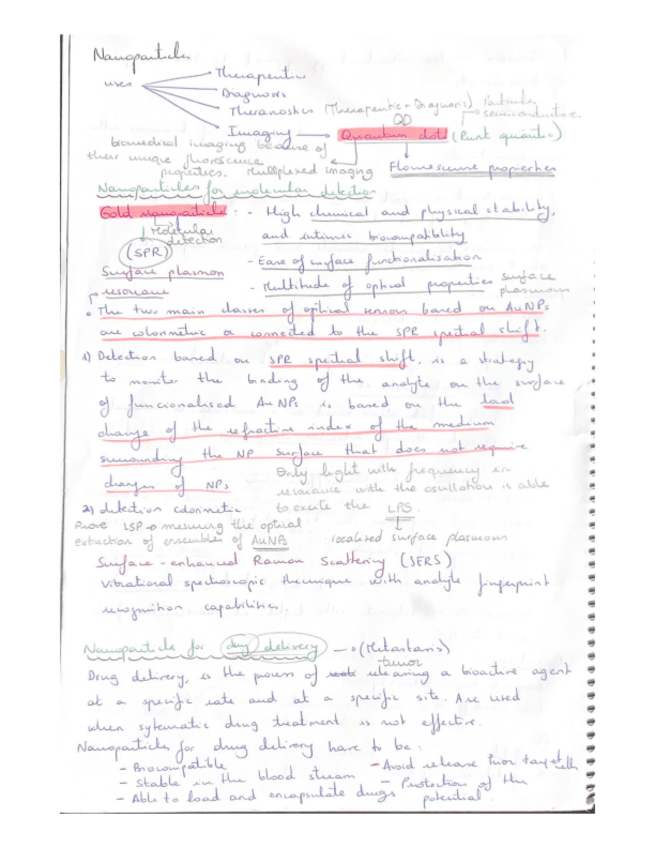 Nanoparticles
uses
Therapeutics
Diagnosis
Theranostics (Therapeutic + Diagnosis)
Particules semiconductrices
Imaging → Quantum dots (Punt quàntic)
QD
biomedical imaging because of
their unique fluorescence
properties. Multiplexed imaging
Flourescense properties
Nanoparticles for molecular detection
Gold nanoparticle: - High chemical and physical stability,
and intrinsic biocompatibility
Molecular
detection
(SPR)
- Ease of surface functionalisation
Surface plasmon
resonance
- Multitude of optical properties surface
plasmons
• The two main classes of optical sensors based on AuNPs
are colorimetric or connected to the SPR spectral shift.
1) Detection based on SPR spectral shift, is a strategy
to monitor the binding of the analyte on the surface
of funcionalised AuNPs is based on the local
change of the refractive index of the medium
surrounding the NP surface that does not require
changes of NPs
Only light with frequency in
resonance with the oscillation is able
to excite the LPS.
2) detection colorimetric
Prove LSP → mesuring the optical
extinction of ensembles of AuNPs
localized surface plasmons
Surface-enhanced Raman Scattering (SERS)
Vibrational spectroscopic thecnique with analyte fingerprint
recognition capabilities.
Nanoparticle for drug delivery → (Metastasis)
tumor
Drug delivery, is the process of releasing a bioactive agent
at a specific rate and at a specific site. Are used
when sytematic drug treatment is not effective.
Nanoparticles for drug delivery have to be:
- Biocompatible
- Avoid release prior target cells
- Stable in the blood stream
- Protection of the
potential
- Able to load and encapsulate drugs